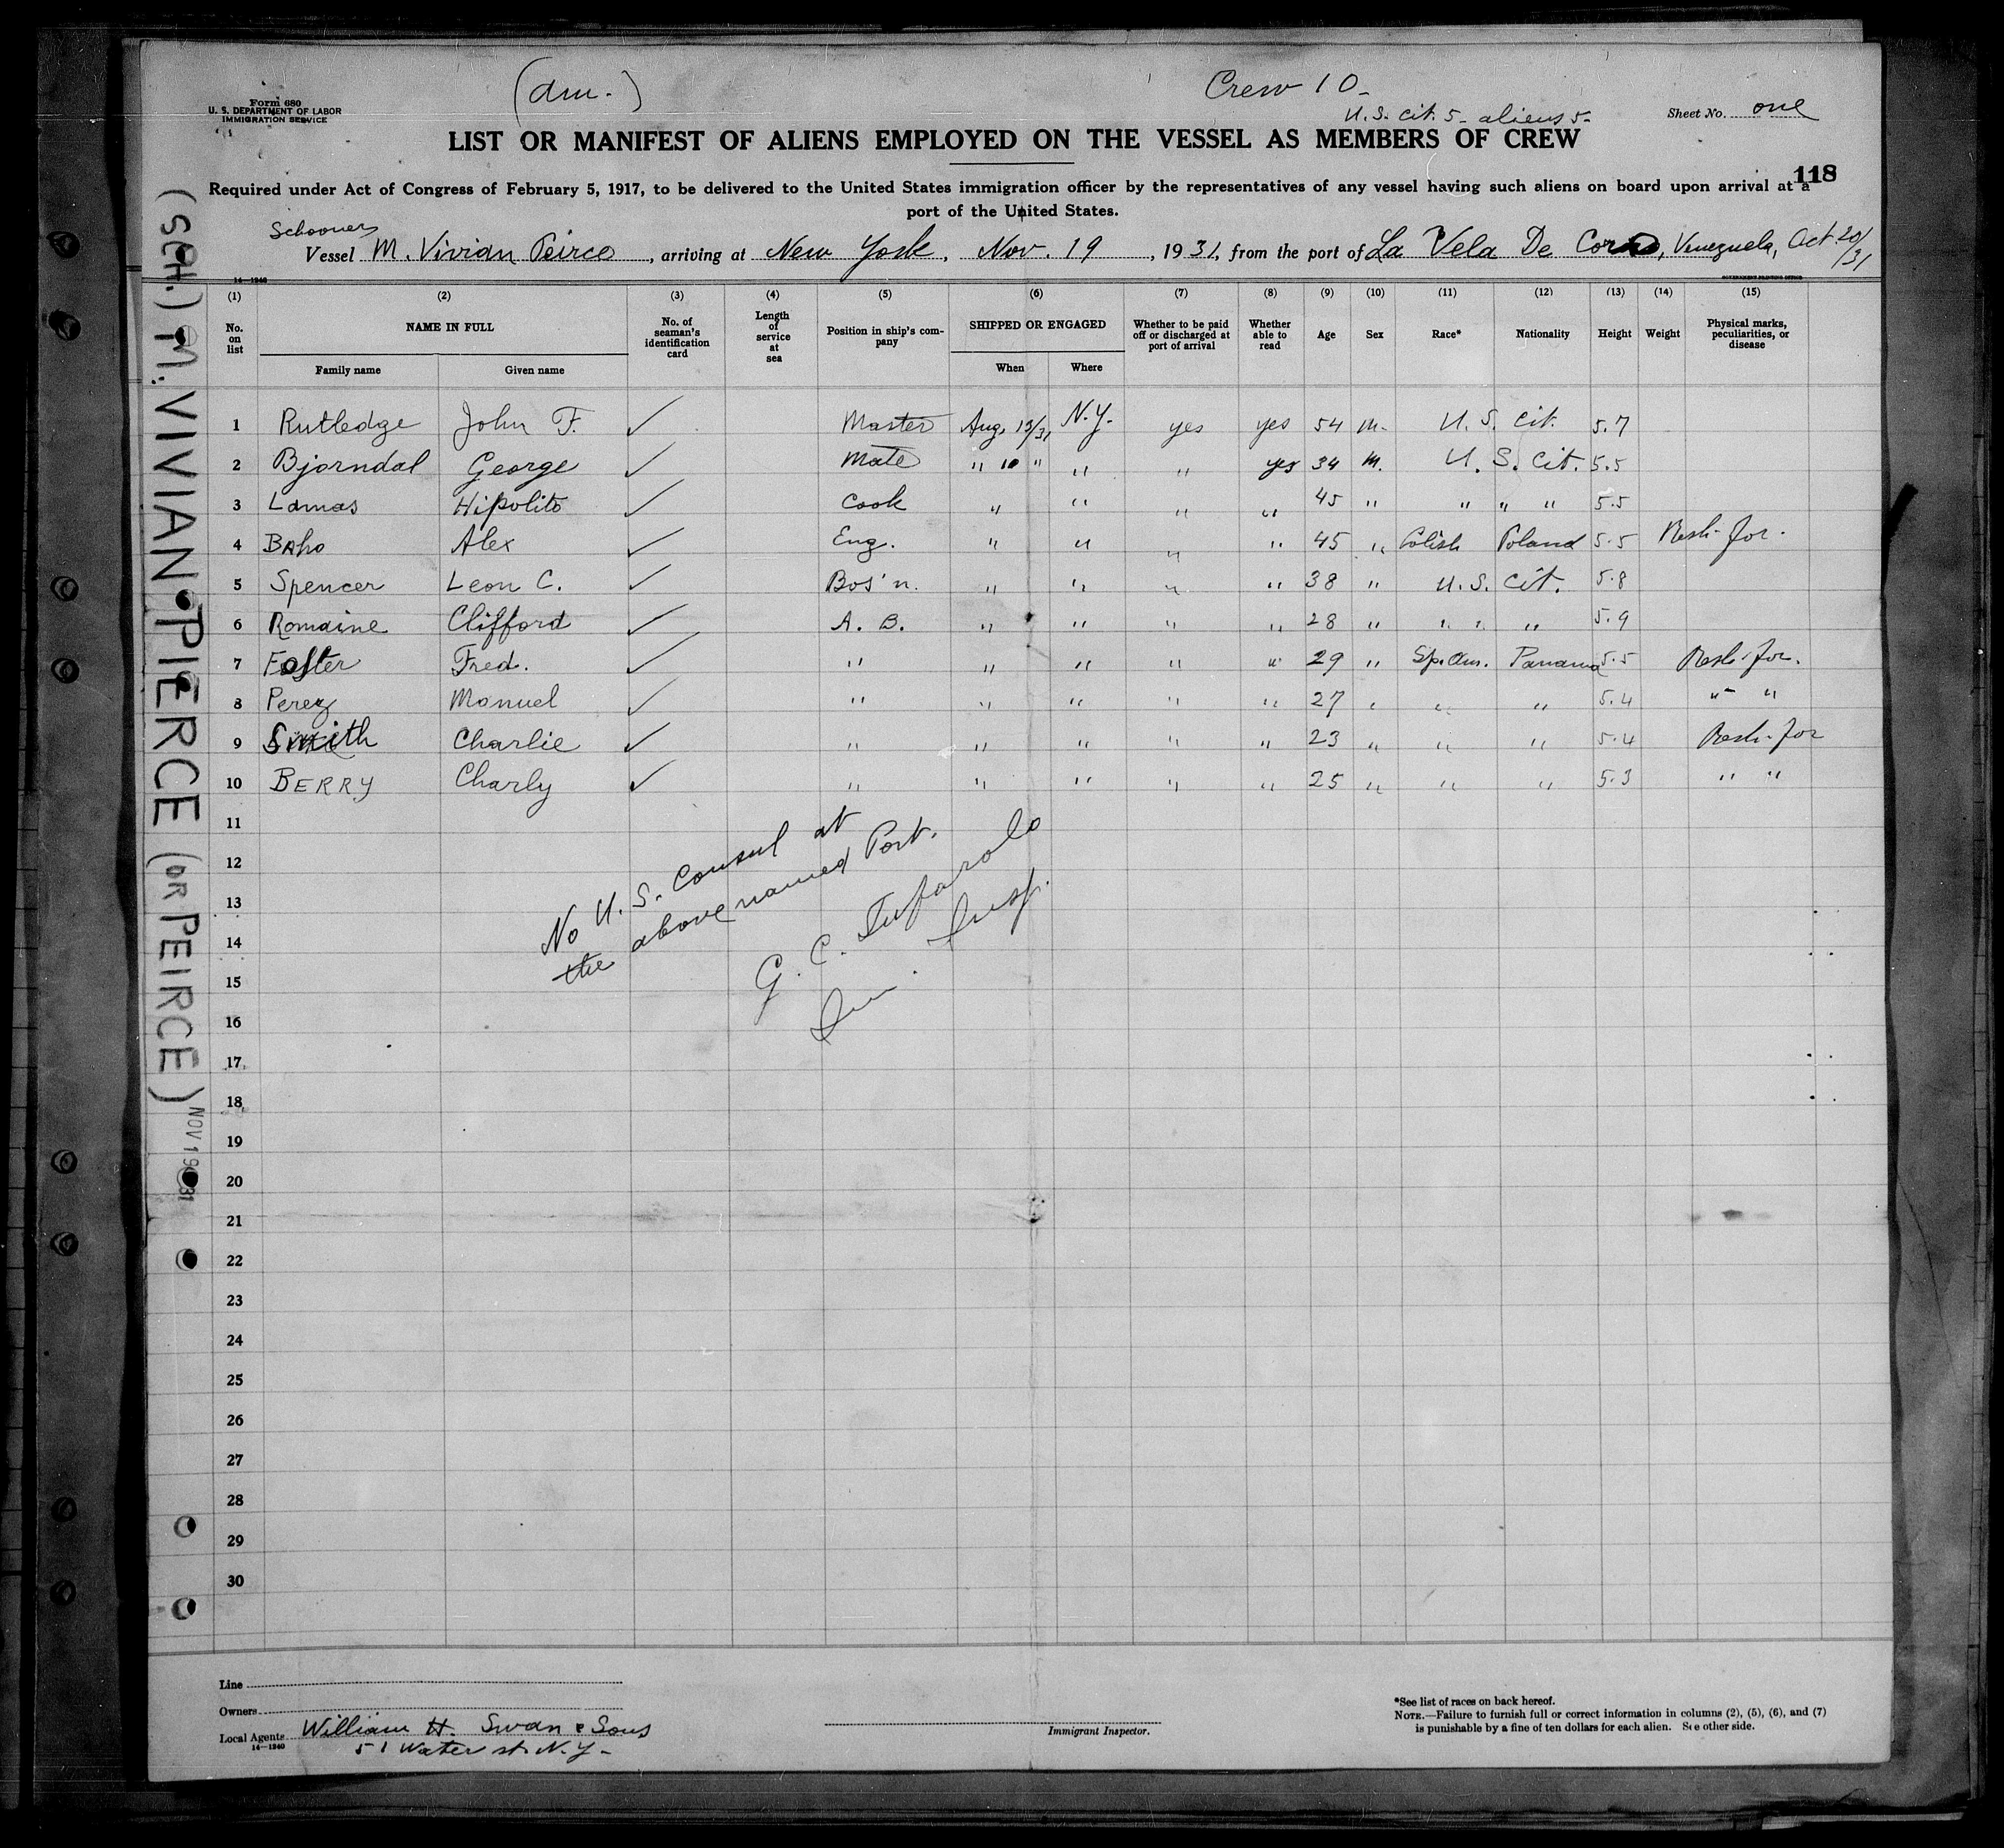 (Am.)
Crew 10-
U.S. cit. 5- aliens 5-
Form 680
U. S. DEPARTMENT OF LABOR
IMMIGRATION SERVICE
Sheet No. one
LIST OR MANIFEST OF ALIENS EMPLOYED ON THE VESSEL AS MEMBERS OF CREW
118
Required under Act of Congress of February 5, 1917, to be delivered to the United States immigration officer by the representatives of any vessel having such aliens on board upon arrival at a
port of the United States.
Schooner
Vessel M. Vivian Peirce, arriving at New York, Nov. 19, 1931, from the port of La Vela De Coro, Venezuela, Oct. 20/31
14—1240
GOVERNMENT PRINTING OFFICE
(1) (2) (3) (4) (5) (6) (7) (8) (9) (10) (11) (12) (13) (14) (15)
No. on list NAME IN FULL Family name Given name No. of seaman's identification card Length of service at sea Position in ship's company SHIPPED OR ENGAGED When Where Whether to be paid off or discharged at port of arrival Whether able to read Age Sex Race* Nationality Height Weight Physical marks, peculiarities, or disease
1 Rutledge John F. ✓ Master Aug. 13/31 N.Y. yes yes 54 m. U. S. cit. 5.7
2 Bjorndal George ✓ Mate " 10 " " " yes 34 m. U. S. cit. 5.5
3 Lamas Hipolito ✓ Cook " " " " 45 " " " " 5.5
4 Baho Alex ✓ Eng. " " " " 45 " Polish Poland 5.5
5 Spencer Leon C. ✓ Bos'n. " " " " 38 " U. S. cit. 5.8
6 Romaine Clifford ✓ A. B. " " " " 28 " " " " 5.9
7 Foster Fred. ✓ " " " " " 29 " Sp. Am. Panama 5.5
8 Perez Manuel ✓ " " " " " 27 " " " 5.4 " "
9 Smith Charlie ✓ " " " " " 23 " " " 5.4
10 BERRY Charly ✓ " " " " " 25 " " " 5.3 " "
11
12
13
14
15
16
17
18
19
20
21
22
23
24
25
26
27
28
29
30
No U. S. Consul at
the above named Port.
G. C.
Imm. Insp.
(SCH.) M. VIVIAN PIERCE (OR PEIRCE)
NOV 19 1931
Line
Owners
Local Agents William H. Swan & Sons
14—1240
51 Water st. N.Y-
Immigrant Inspector.
*See list of races on back hereof.
NOTE.—Failure to furnish full or correct information in columns (2), (5), (6), and (7)
is punishable by a fine of ten dollars for each alien. See other side.